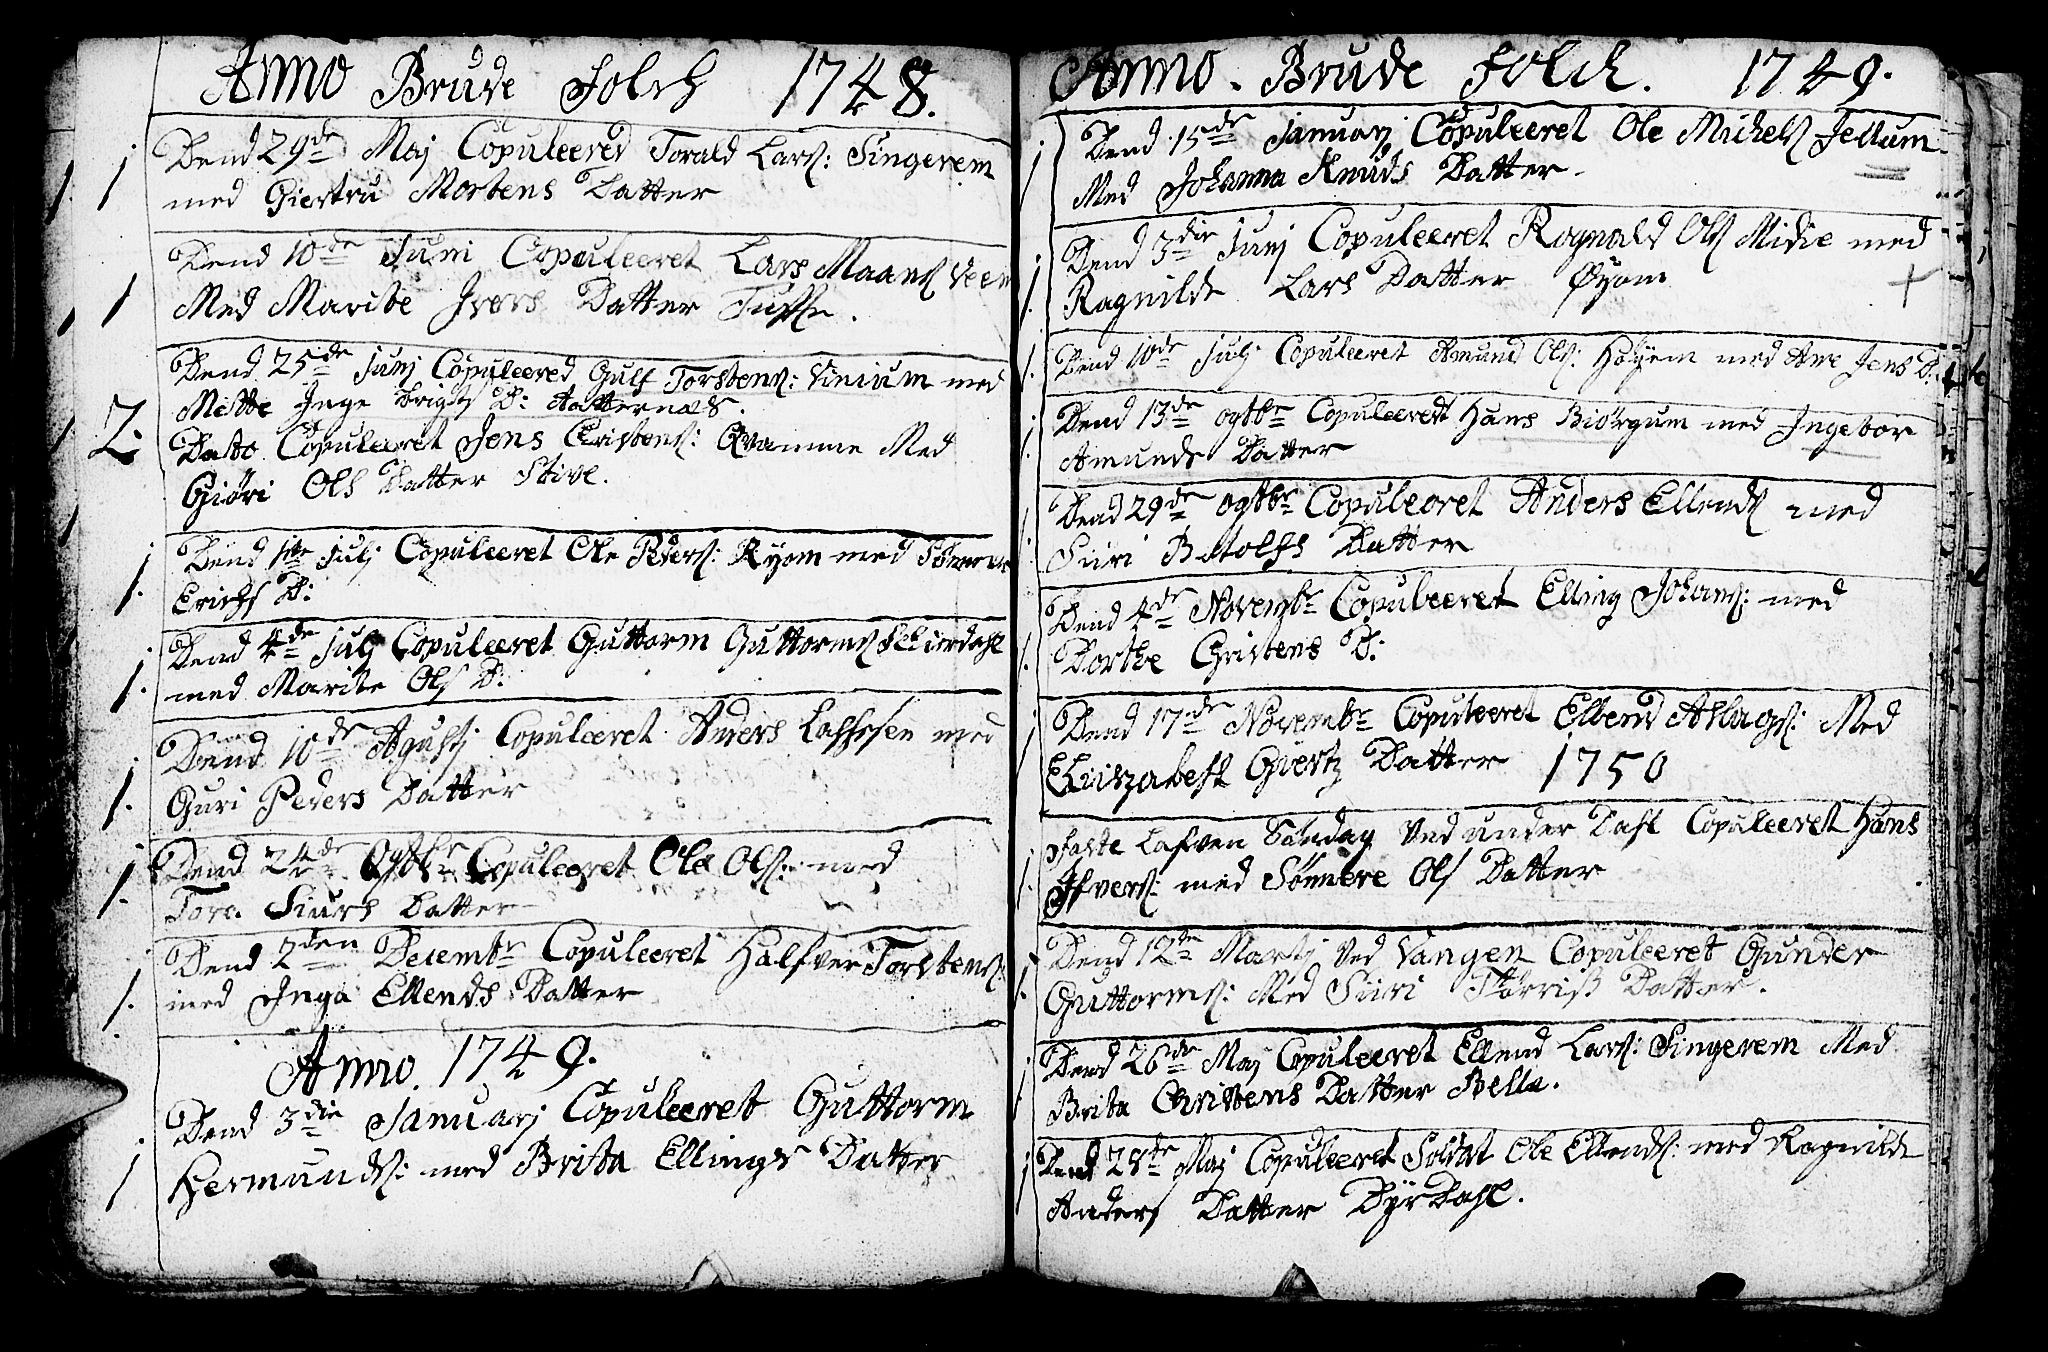 Anno Brude Folch 1748.
1 Dend 29de Maj Copuleered Torald Lars: Singerem
med Giertru Mortens Datter
1 Dend 10de Juni Copuleeret Lars Maans Veem
Med Marite Ivers Datter Tuffte.
Dend 25de Junj Copuleered Gulf Torstens: Vinium med
2. Mette Inge Brigts D: Aatternæs.
Dato Copuleeret Jens Cristens: Qvamme Med
Giøri Ols Datter Stive.
1. Dend 1ste Julj Copuleeret Ole Peders: Ryom med
Erichs D:
1. Dend 4de Julj Copuleeret Guttorm Guttorms Schiordahl
med Marite Ols D:
1. Dend 10de Agustj Copuleeret Anders Lassesen med
Guri Peders Datter
1. Dend 24de Ogtbr Copuleeret Ole Ols: med
Toro Siurs Datter
1. Dend 2den Decembr Copuleeret Halfver Torstens:
med Inga Ellends Datter
Anno. 1749.
1 Dend 3die Januarj Copuleeret Guttorm
Hermunds: med Brita Ellings Datter
Anno. Brude Folch. 1749.
1 Dend 15de Januarj Copuleeret Ole Michels Jellum
Med Johanna Knuds Datter.
1. Dend 3die Junj Copuleeret Rognald Ols Midie med
Ragnilde Lars Datter Øyom +
1. Dend 10de Julj Copuleeret Amund Ols: Holyem med Ane Jens D:
1. Dend 13de ogtbr Copuleeret Hans Biørgum med Ingebor
Amunds Datter
1. Dend 29de ogtbr Copuleeret Anders Ellends med
Siuri Botolfs Datter
1. Dend 4de Novembr Copuleeret Elling Johans: med
Dorthe Christens D:
1 Dend 17de Novembr Copuleeret Ellend Aslags: Med
Eliiszabeth Giertz Datter 1750
1. faste Lafven Søndag Ved under Dahl Copuleeret Hans
Ifvers: med Sønnere Ols Datter
1. Dend 12te Martj Ved Vangen Copuleeret Gunder
Guttorms: Med Siiri Størriss Datter.
1 Dend 26de Maj Copuleeret Ellend Lars: Singerem Med
Brita Christens Datter Belle.
1 Dend 28te Maj Copuleeret Soldat Ole Ellends: med Ragnilde
Anders Datter Dyrdahl.